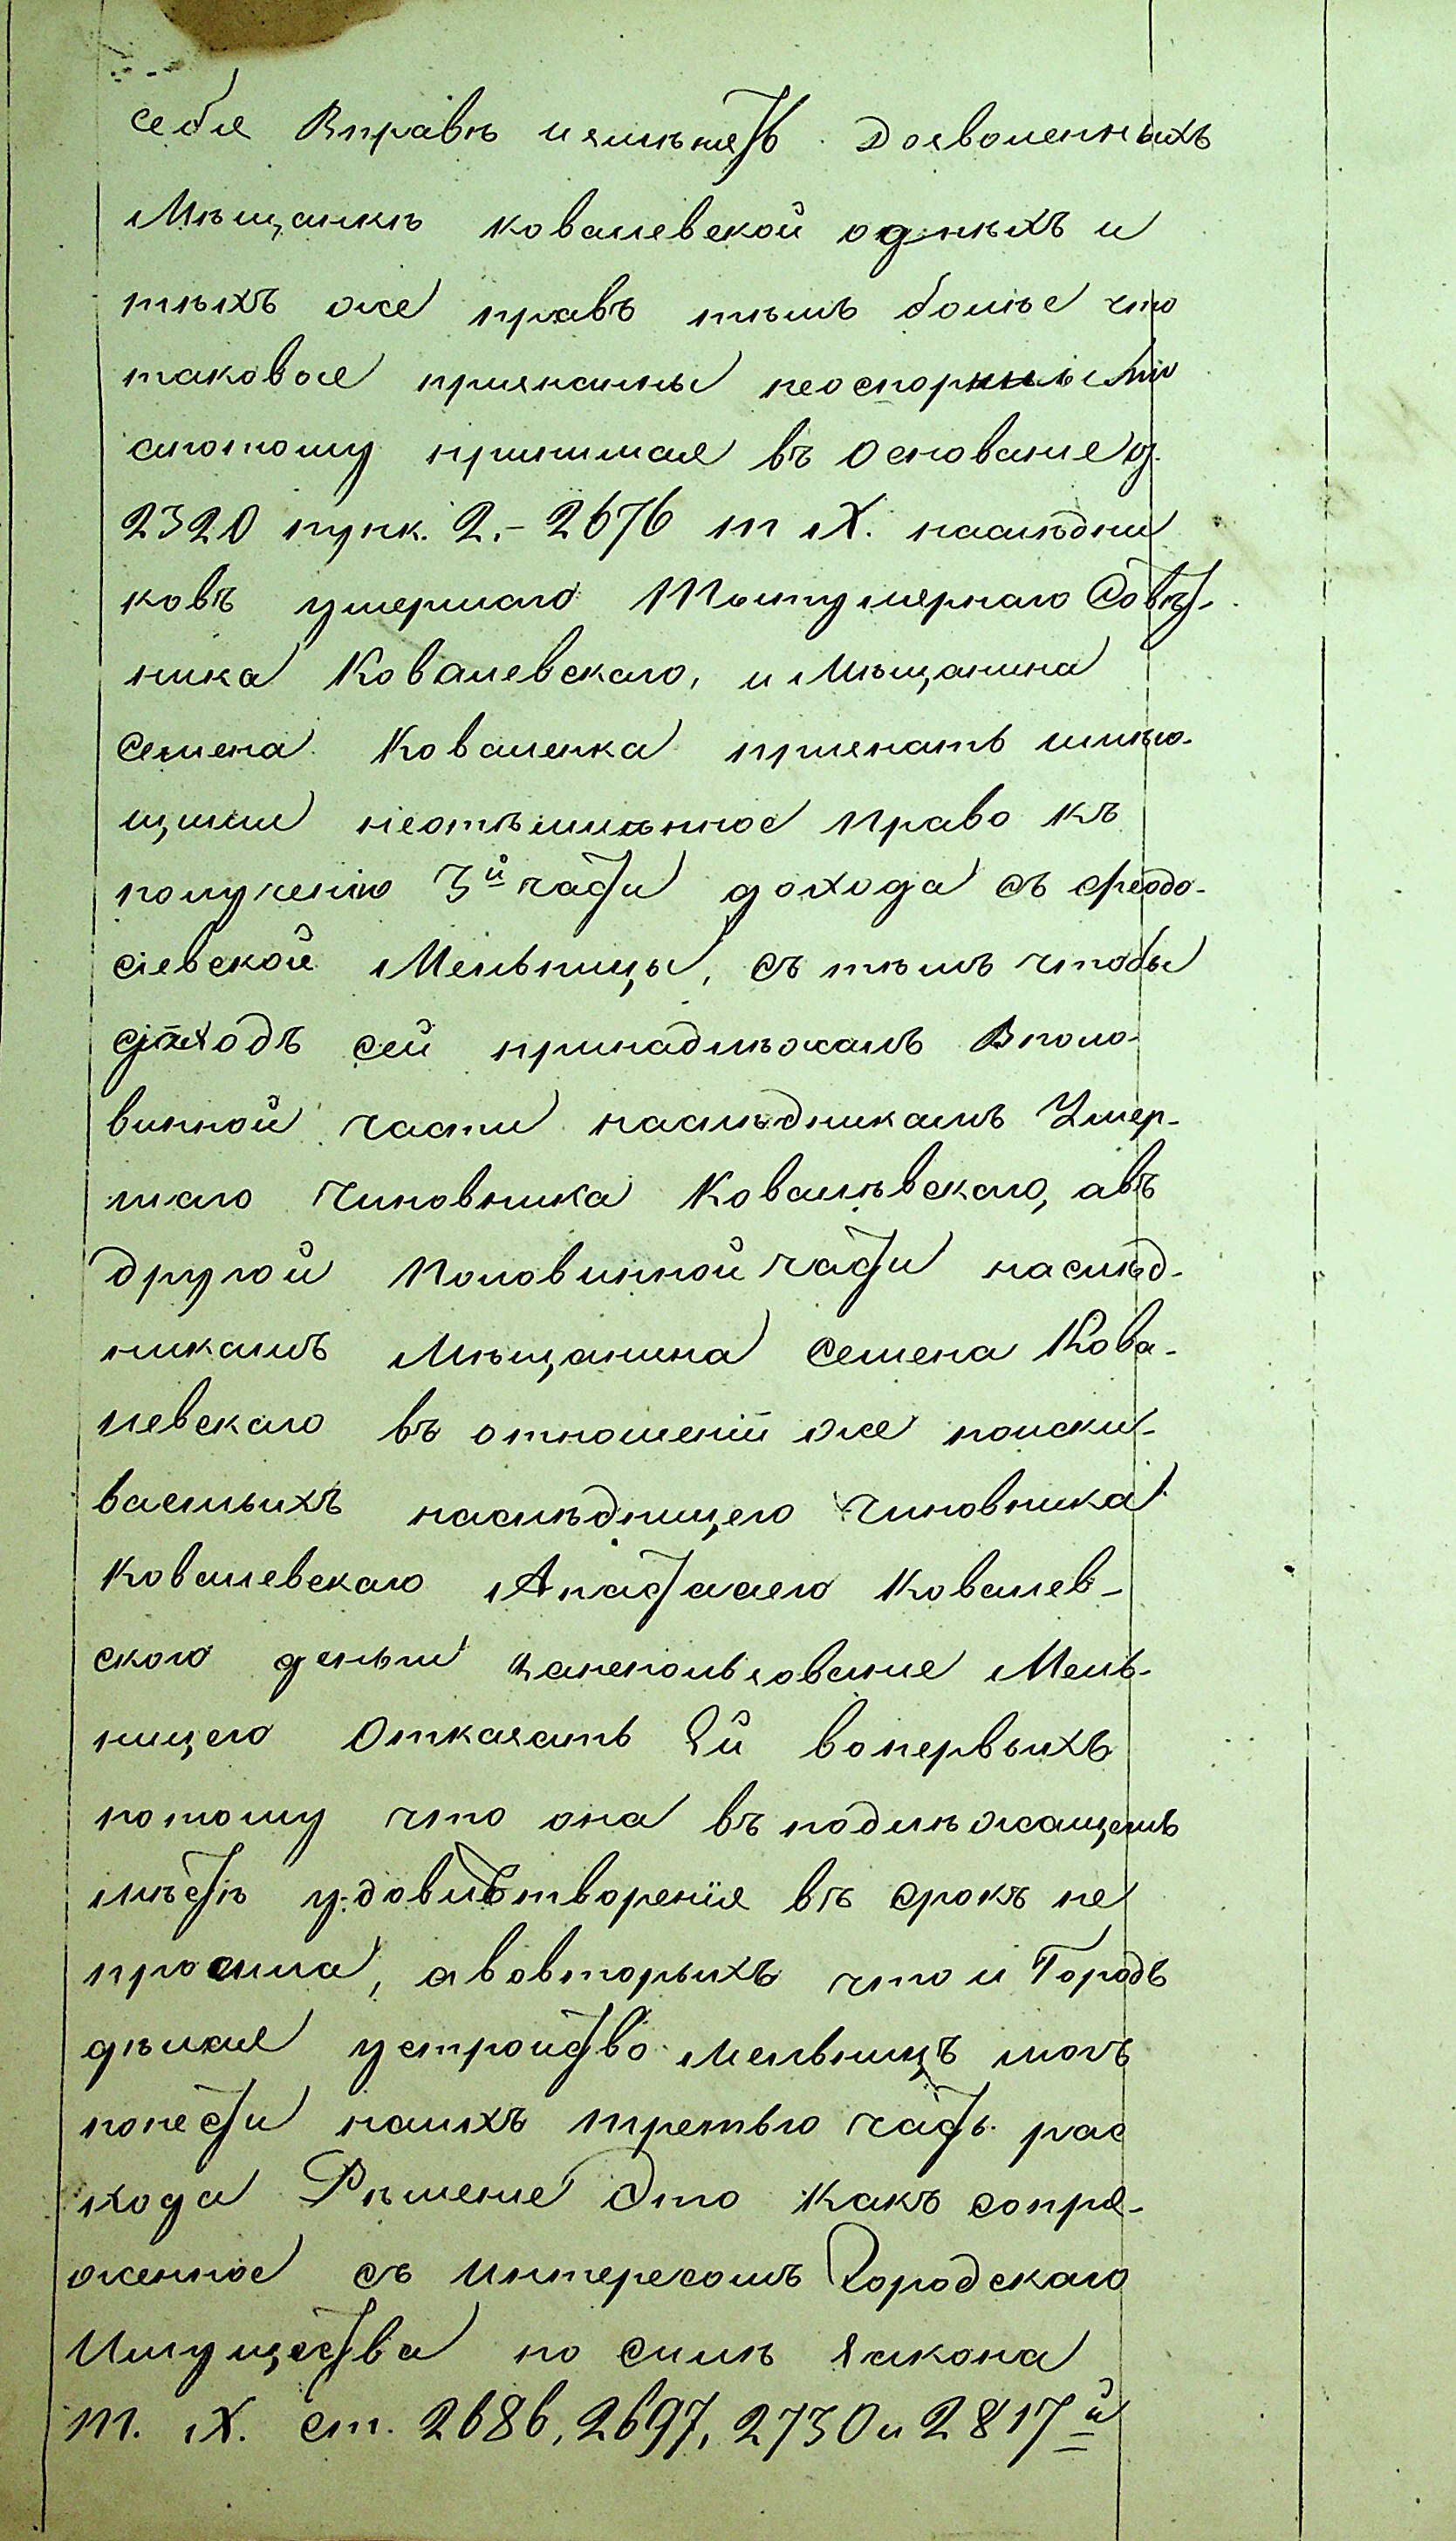 себя Вправѣ измѣнять дозволенныхъ
Мѣщанкѣ Ковалевской однѣхъ и
тѣхъ же правъ тѣмъ болѣе что
таковые признанны неоспоримыми
апотому принимая въ основаніе у.
2320 пунк. 2.- 2676 т IX. наслѣдни
ковъ умершаго Титулярнаго Совѣт-
ника Ковалевскаго, и Мѣщанина
Семена Коваленка признать имѣю-
щими неотъемлѣнное право къ
полученію 3й части дохода съ Феодо-
сіевской Мельницы, съ тѣмъ чтобы
доходъ сей принадлѣжалъ Вполо-
винной части наслѣдникамъ Умер-
шаго Чиновника Ковалѣвскаго, авъ
другой Половинной части наслѣд-
никамъ Мѣщанина Семена Кова-
левскаго въ отношеніи же поиски-
ваемыхъ наслѣдницею Чиновника
Ковалевскаго Анастасіею Ковалев-
ского деньги занепользованіе Мель-
ницею Отказать Ей вопервыхъ
потому что она въ подлѣжащемъ
мѣстѣ удовлѣтворенія въ срокъ не
просила, ававторыхъ что и Городъ
дѣлая устройство мельницъ могъ
понести наихъ третью часть рас
хода Рѣшеніе Это какъ сопря-
женное съ Интересомъ Городскаго
Имущества по силѣ Закона
т. IX. ст. 2686, 2697, 2730 и 2817й